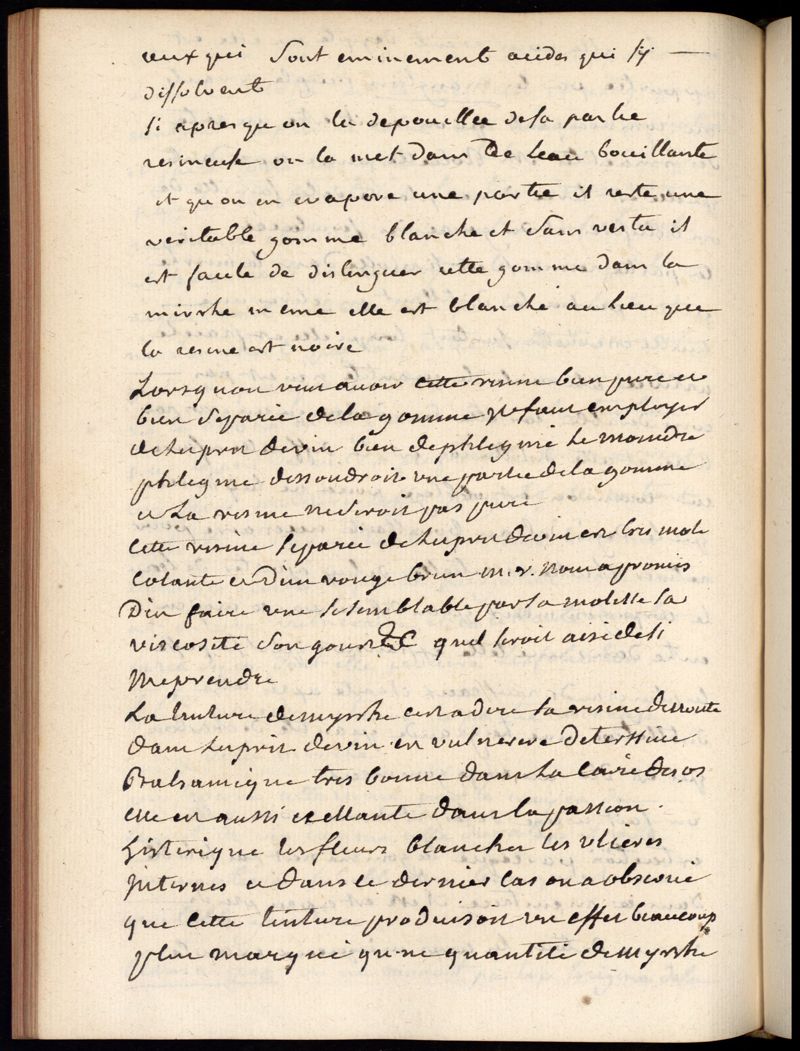 ceux qui sont eminement acides qui sy
dissolvent
si apres qu on la depouillee de sa partie
resineuse on la met dans de leau bouillante
et qu on en evapore une partie il reste une
veritable gomme blanche et sans vertu il
est facile de distinguer cette gomme dans la
mirrhe meme elle est blanche au lieu que
la resine est noire
Lorsquon veut avoir cette resine bien pure et
bien separée de la gomme il faut employer
de lesprit de vin bien dephlegmé le moindre
phlegme dissoudroit une partie de la gomme
et La resine ne seroit pas pure
Cette resine separée de lesprit de vin est tres mole
Colante et Dun rouge brun m. r. nous a promis
Den faire une si semblable par sa molesse sa
viscosité son goust &C quil seroit aisé de si
meprendre
La tinture de myrrhe cest a dire la resine dissoute
dans lesprit de vin est vulnerere detersive
Balsamique tres bonne dans La Carie des os
elle est aussi exellante dans la passion
histerique les fleurs blanches les ulceres
internes et dans ce dernier cas on a observé
que cette tinture produisoit un effet beaucoup
plus marqué qune quantité de myrrhe